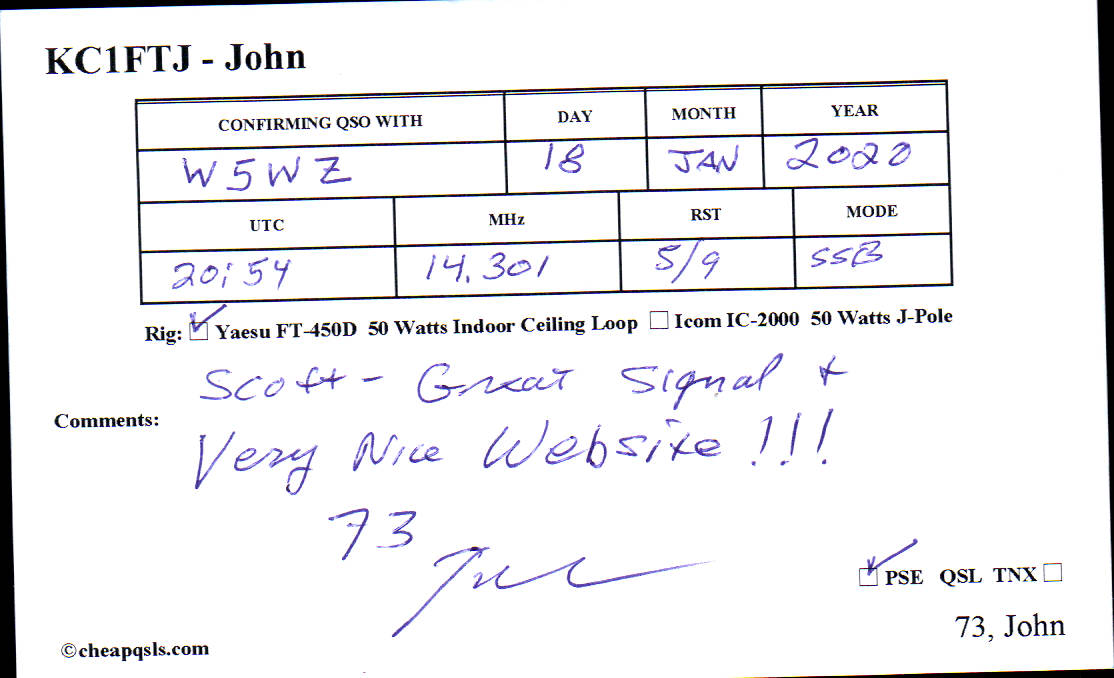 KC1FTJ - John
CONFIRMING QSO WITH DAY MONTH YEAR
W5WZ 18 JAN 2020
UTC MHz RST MODE
20:54 14.301 5/9 SSB
Rig: Yaesu FT-450D 50 Watts Indoor Ceiling Loop Icom IC-2000 50 Watts J-Pole
Scott - Great Signal +
Comments:
Very Nice Website !!!
73
PSE QSL TNX
73, John
©cheapqsls.com